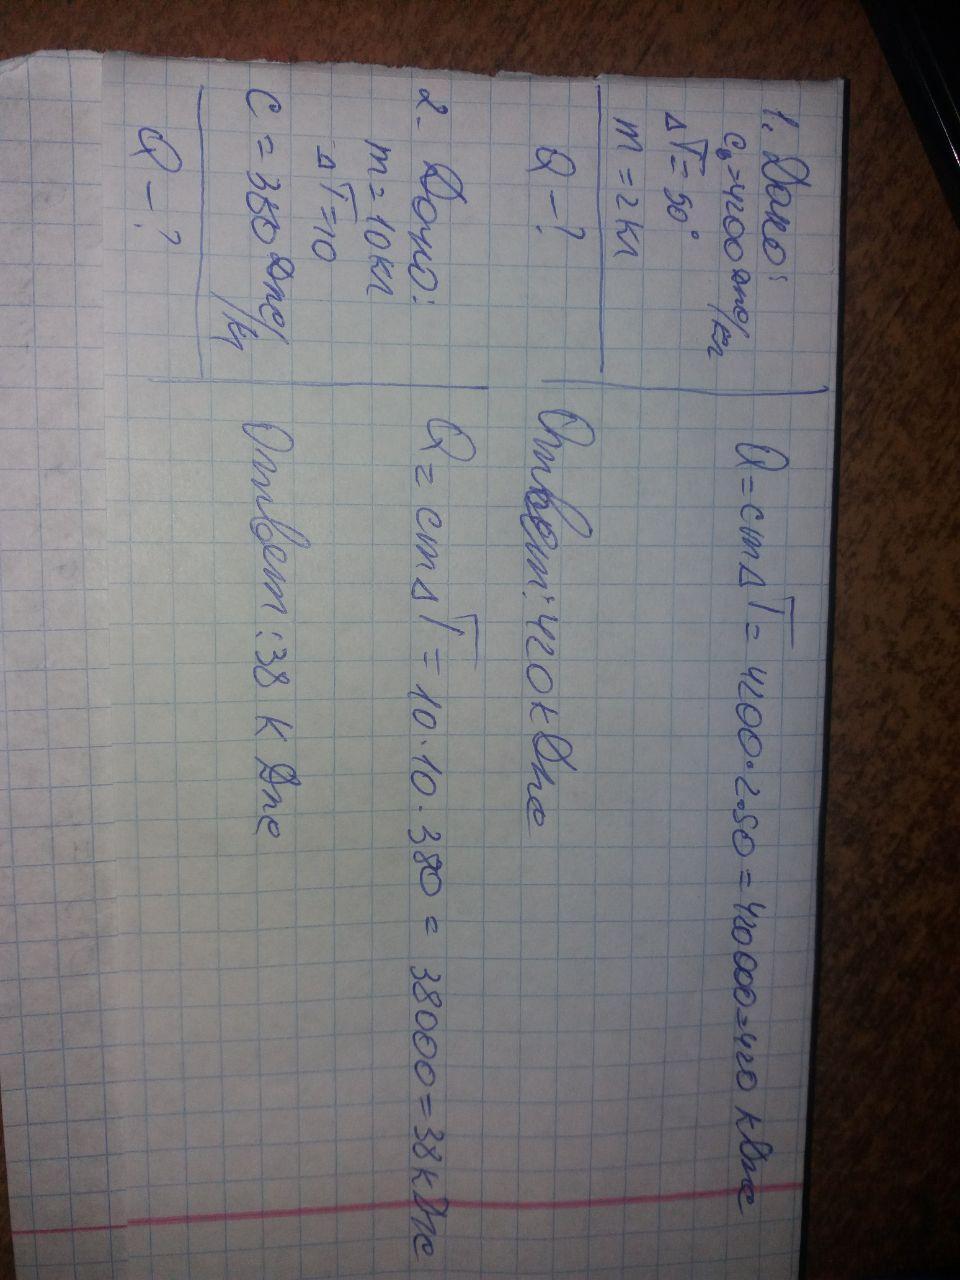 1. Дано:
c₆=4200 Дж/кг
ΔT=50°
m=2кг
Q-?
Q=cmΔT=4200·2·50=420000=420 кДж
Ответ: 420 кДж
2- Дано:
m=10кг
ΔT=10
C=380 Дж/кг
Q-?
Q=cmΔT=10·10·380=38000=38кДж
Ответ: 38 кДж